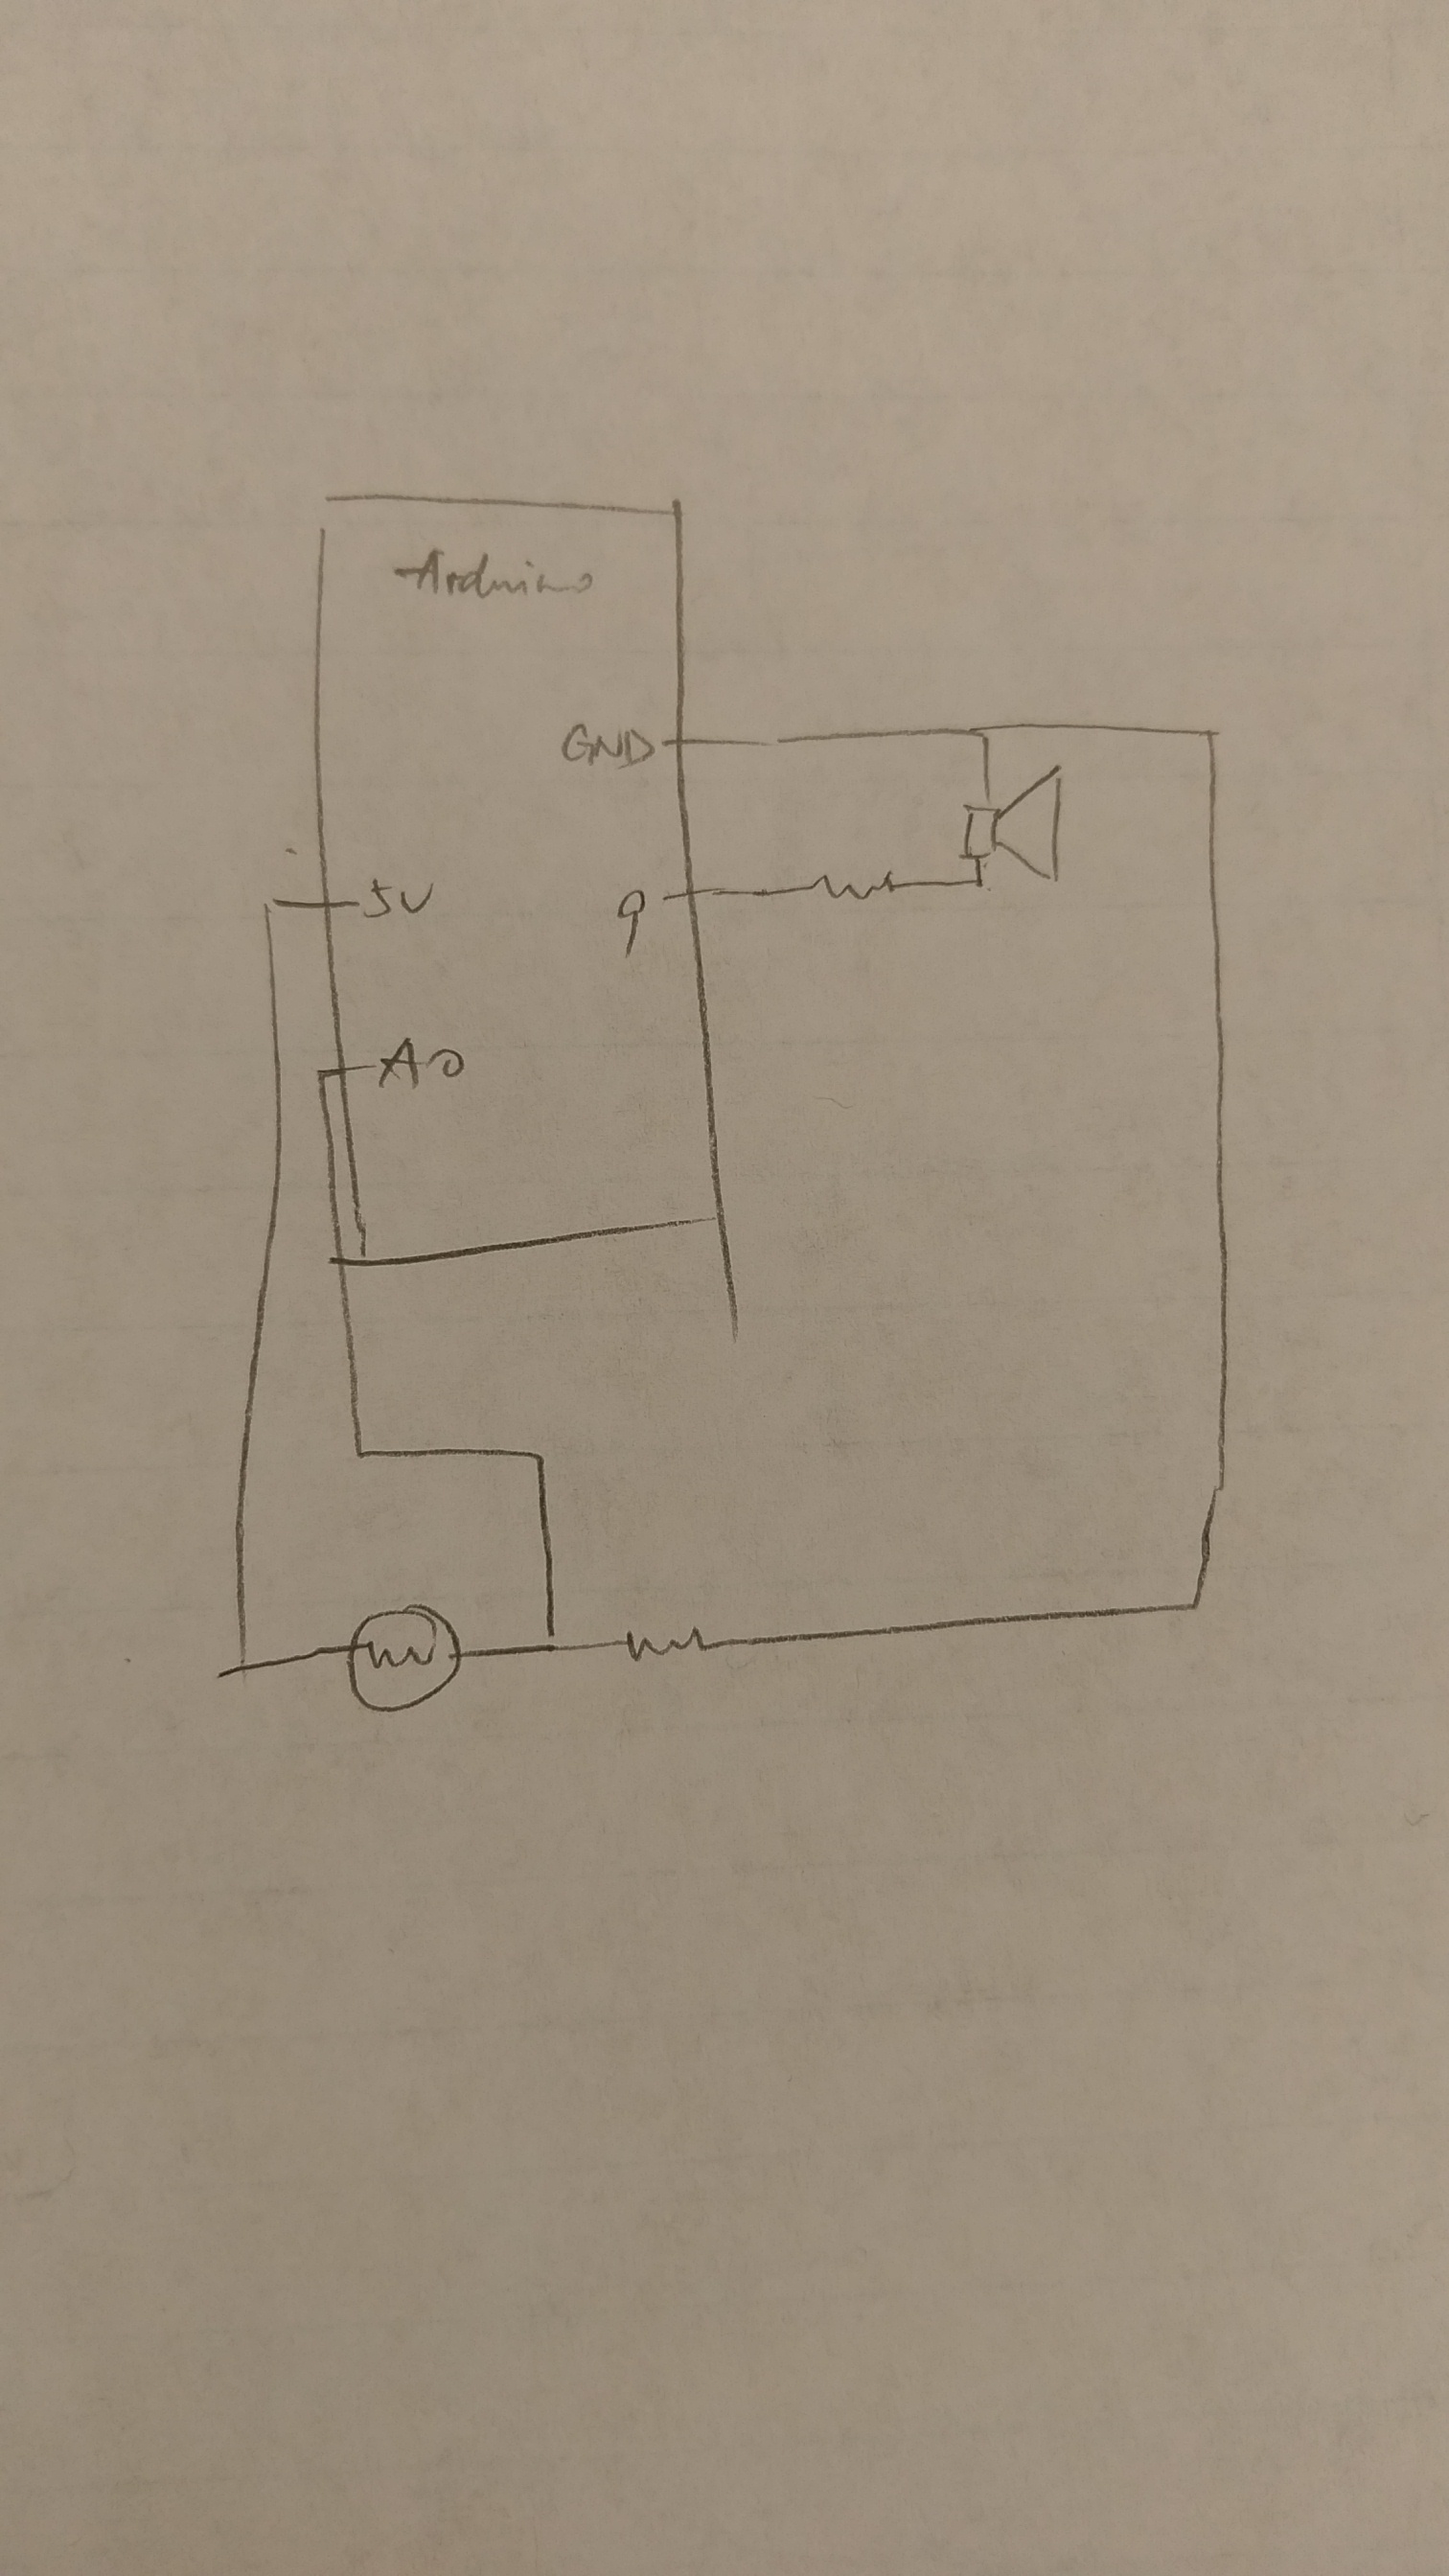 Arduino
GND
5V
9
A0